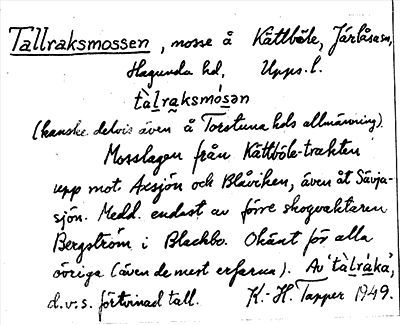 Tallraksmossen, mosse å Kättböle, Järlåsasn,
Hagunda hd, Upps. l.
tàlraksmósən
(kanske delvis även å Torstuna hds allmänning).
Mosslagen från Kättböle-trakten
upp mot Axsjön och Blåviken, även åt Sävja-
sjön. Medd. endast av förre skogvaktaren
Bergström i Blackbo. Okänt för alla
övriga (även de mest erfarna). Av 'tàlráka',
d.v.s. förtvinad tall. K.-H. Tapper 1949.